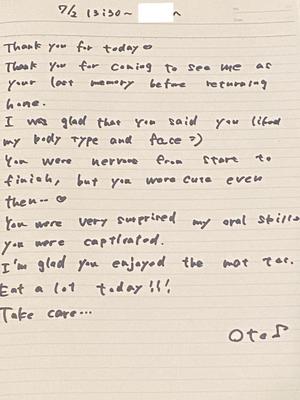 7/2 13:30~
Thank you for today♡
Thank you for coming to see me as
your last memory before returning
home.
I was glad that you said you liked
my body type and face :)
You were nervous from start to
finish, but you were cute even
then.. ☺
You were very surprised my oral skills
you were captivated.
I'm glad you enjoyed the mat too.
Eat a lot today!!!
Take care...